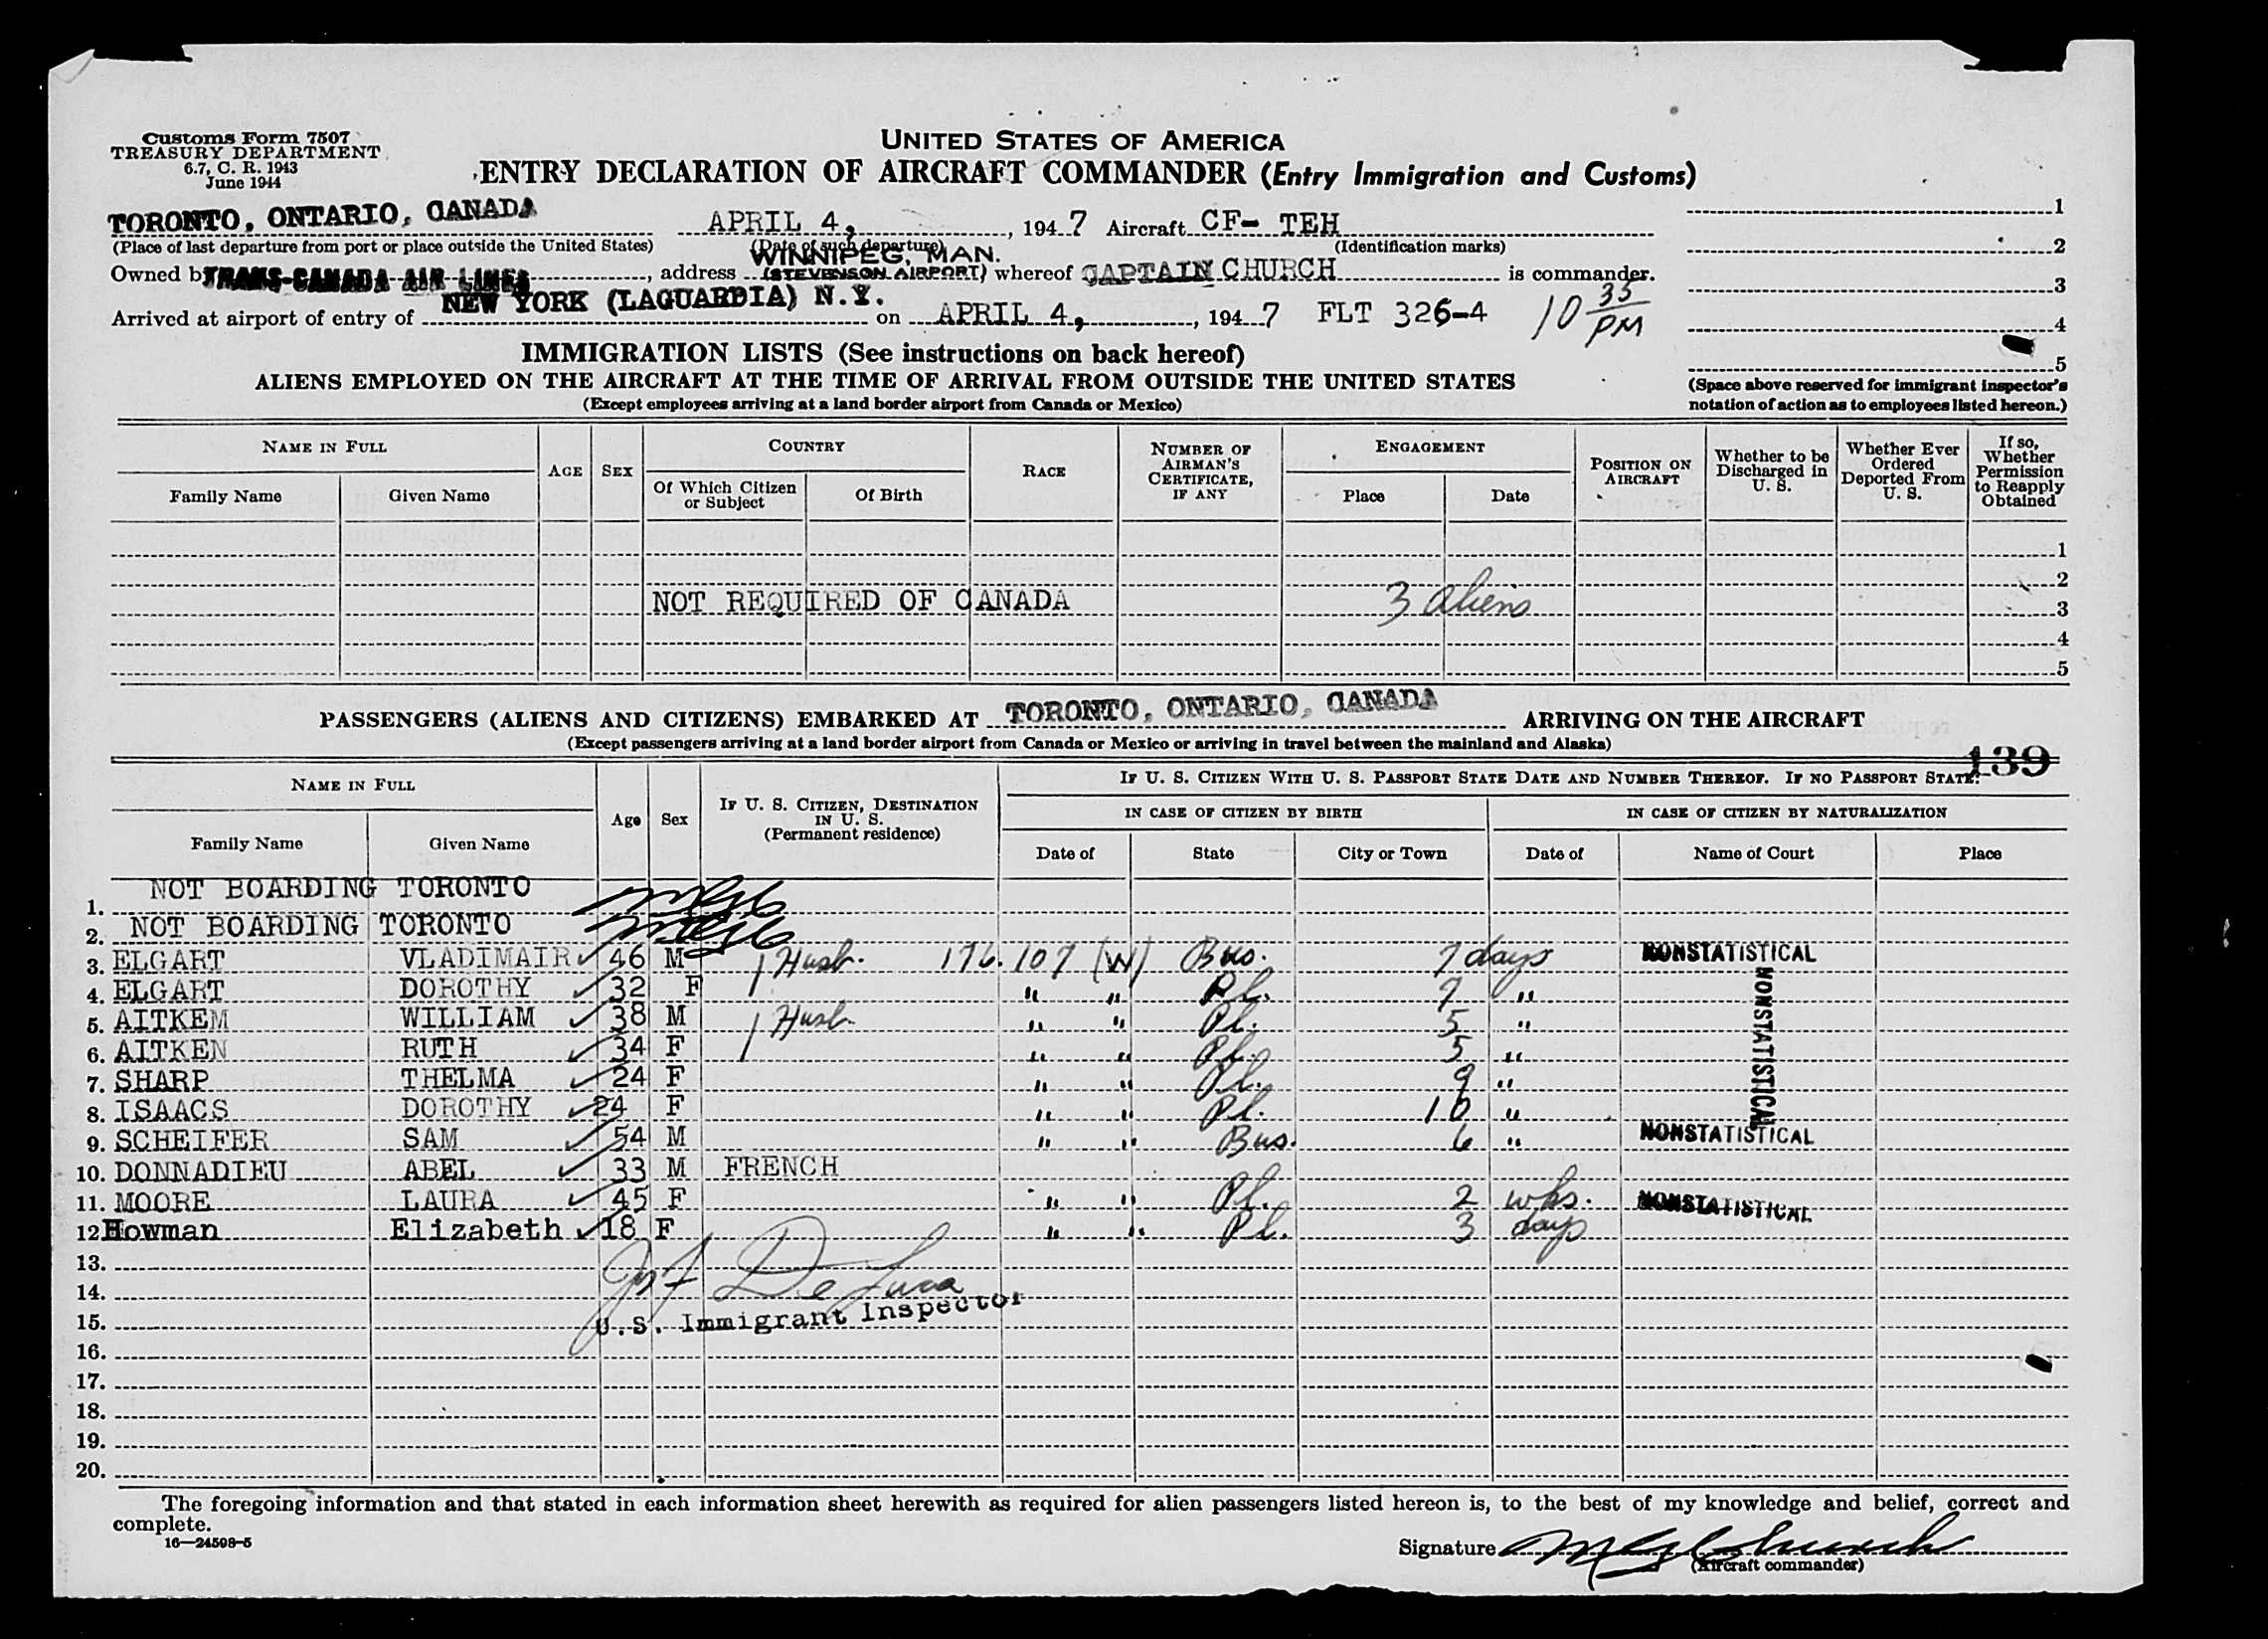 Customs Form 7507
TREASURY DEPARTMENT
6.7, C. R. 1943
June 1944
UNITED STATES OF AMERICA
ENTRY DECLARATION OF AIRCRAFT COMMANDER (Entry Immigration and Customs)
TORONTO, ONTARIO, CANADA APRIL 4, , 194 7 Aircraft CF- TEH
(Place of last departure from port or place outside the United States) (Date of such departure) (Identification marks)
WINNIPEG, MAN.
Owned by TRANS-CANADA AIR LINES , address (STEVENSON AIRPORT) whereof CAPTAIN CHURCH is commander.
Arrived at airport of entry of NEW YORK (LAGUARDIA) N.Y. on APRIL 4, , 194 7 FLT 326-4 10 35 PM
1
2
3
4
5
(Space above reserved for immigrant inspector's
notation of action as to employees listed hereon.)
IMMIGRATION LISTS (See instructions on back hereof)
ALIENS EMPLOYED ON THE AIRCRAFT AT THE TIME OF ARRIVAL FROM OUTSIDE THE UNITED STATES
(Except employees arriving at a land border airport from Canada or Mexico)
NAME IN FULL
Family Name Given Name
AGE
SEX
COUNTRY
Of Which Citizen or Subject
Of Birth
RACE
NUMBER OF AIRMAN'S CERTIFICATE, IF ANY
ENGAGEMENT
Place Date
POSITION ON AIRCRAFT
Whether to be Discharged in U. S.
Whether Ever Ordered Deported From U. S.
If so, Whether Permission to Reapply Obtained
1
2
NOT REQUIRED OF CANADA 3 aliens 3
4
5
PASSENGERS (ALIENS AND CITIZENS) EMBARKED AT TORONTO, ONTARIO, CANADA ARRIVING ON THE AIRCRAFT
(Except passengers arriving at a land border airport from Canada or Mexico or arriving in travel between the mainland and Alaska)
139
NAME IN FULL
Family Name Given Name
Age
Sex
IF U. S. CITIZEN, DESTINATION IN U. S. (Permanent residence)
IF U. S. CITIZEN WITH U. S. PASSPORT STATE DATE AND NUMBER THEREOF. IF NO PASSPORT STATE:
IN CASE OF CITIZEN BY BIRTH
IN CASE OF CITIZEN BY NATURALIZATION
Date of State City or Town Date of Name of Court Place
1. NOT BOARDING TORONTO
2. NOT BOARDING TORONTO
3. ELGART VLADIMAIR 46 M Husb. 176.107 (W) Bus. 7 days NONSTATISTICAL
4. ELGART DOROTHY 32 F " " Pl. 7 "
5. AITKEM WILLIAM 38 M Husb. " " Pl. 5 "
6. AITKEN RUTH 34 F " " Pl. 5 "
7. SHARP THELMA 24 F " " Pl. 9 "
8. ISAACS DOROTHY 24 F " " Pl. 10 "
NONSTATISTICAL
9. SCHEIFER SAM 54 M " " Bus. 6 " NONSTATISTICAL
10. DONNADIEU ABEL 33 M FRENCH
11. MOORE LAURA 45 F " " Pl. 2 wks. NONSTATISTICAL
12. Howman Elizabeth 18 F " " Pl. 3 days
13.
14. De Luca
15. U.S. Immigrant Inspector
16.
17.
18.
19.
20.
The foregoing information and that stated in each information sheet herewith as required for alien passengers listed hereon is, to the best of my knowledge and belief, correct and
complete.
16—24598-5
Signature Church
(Aircraft commander)